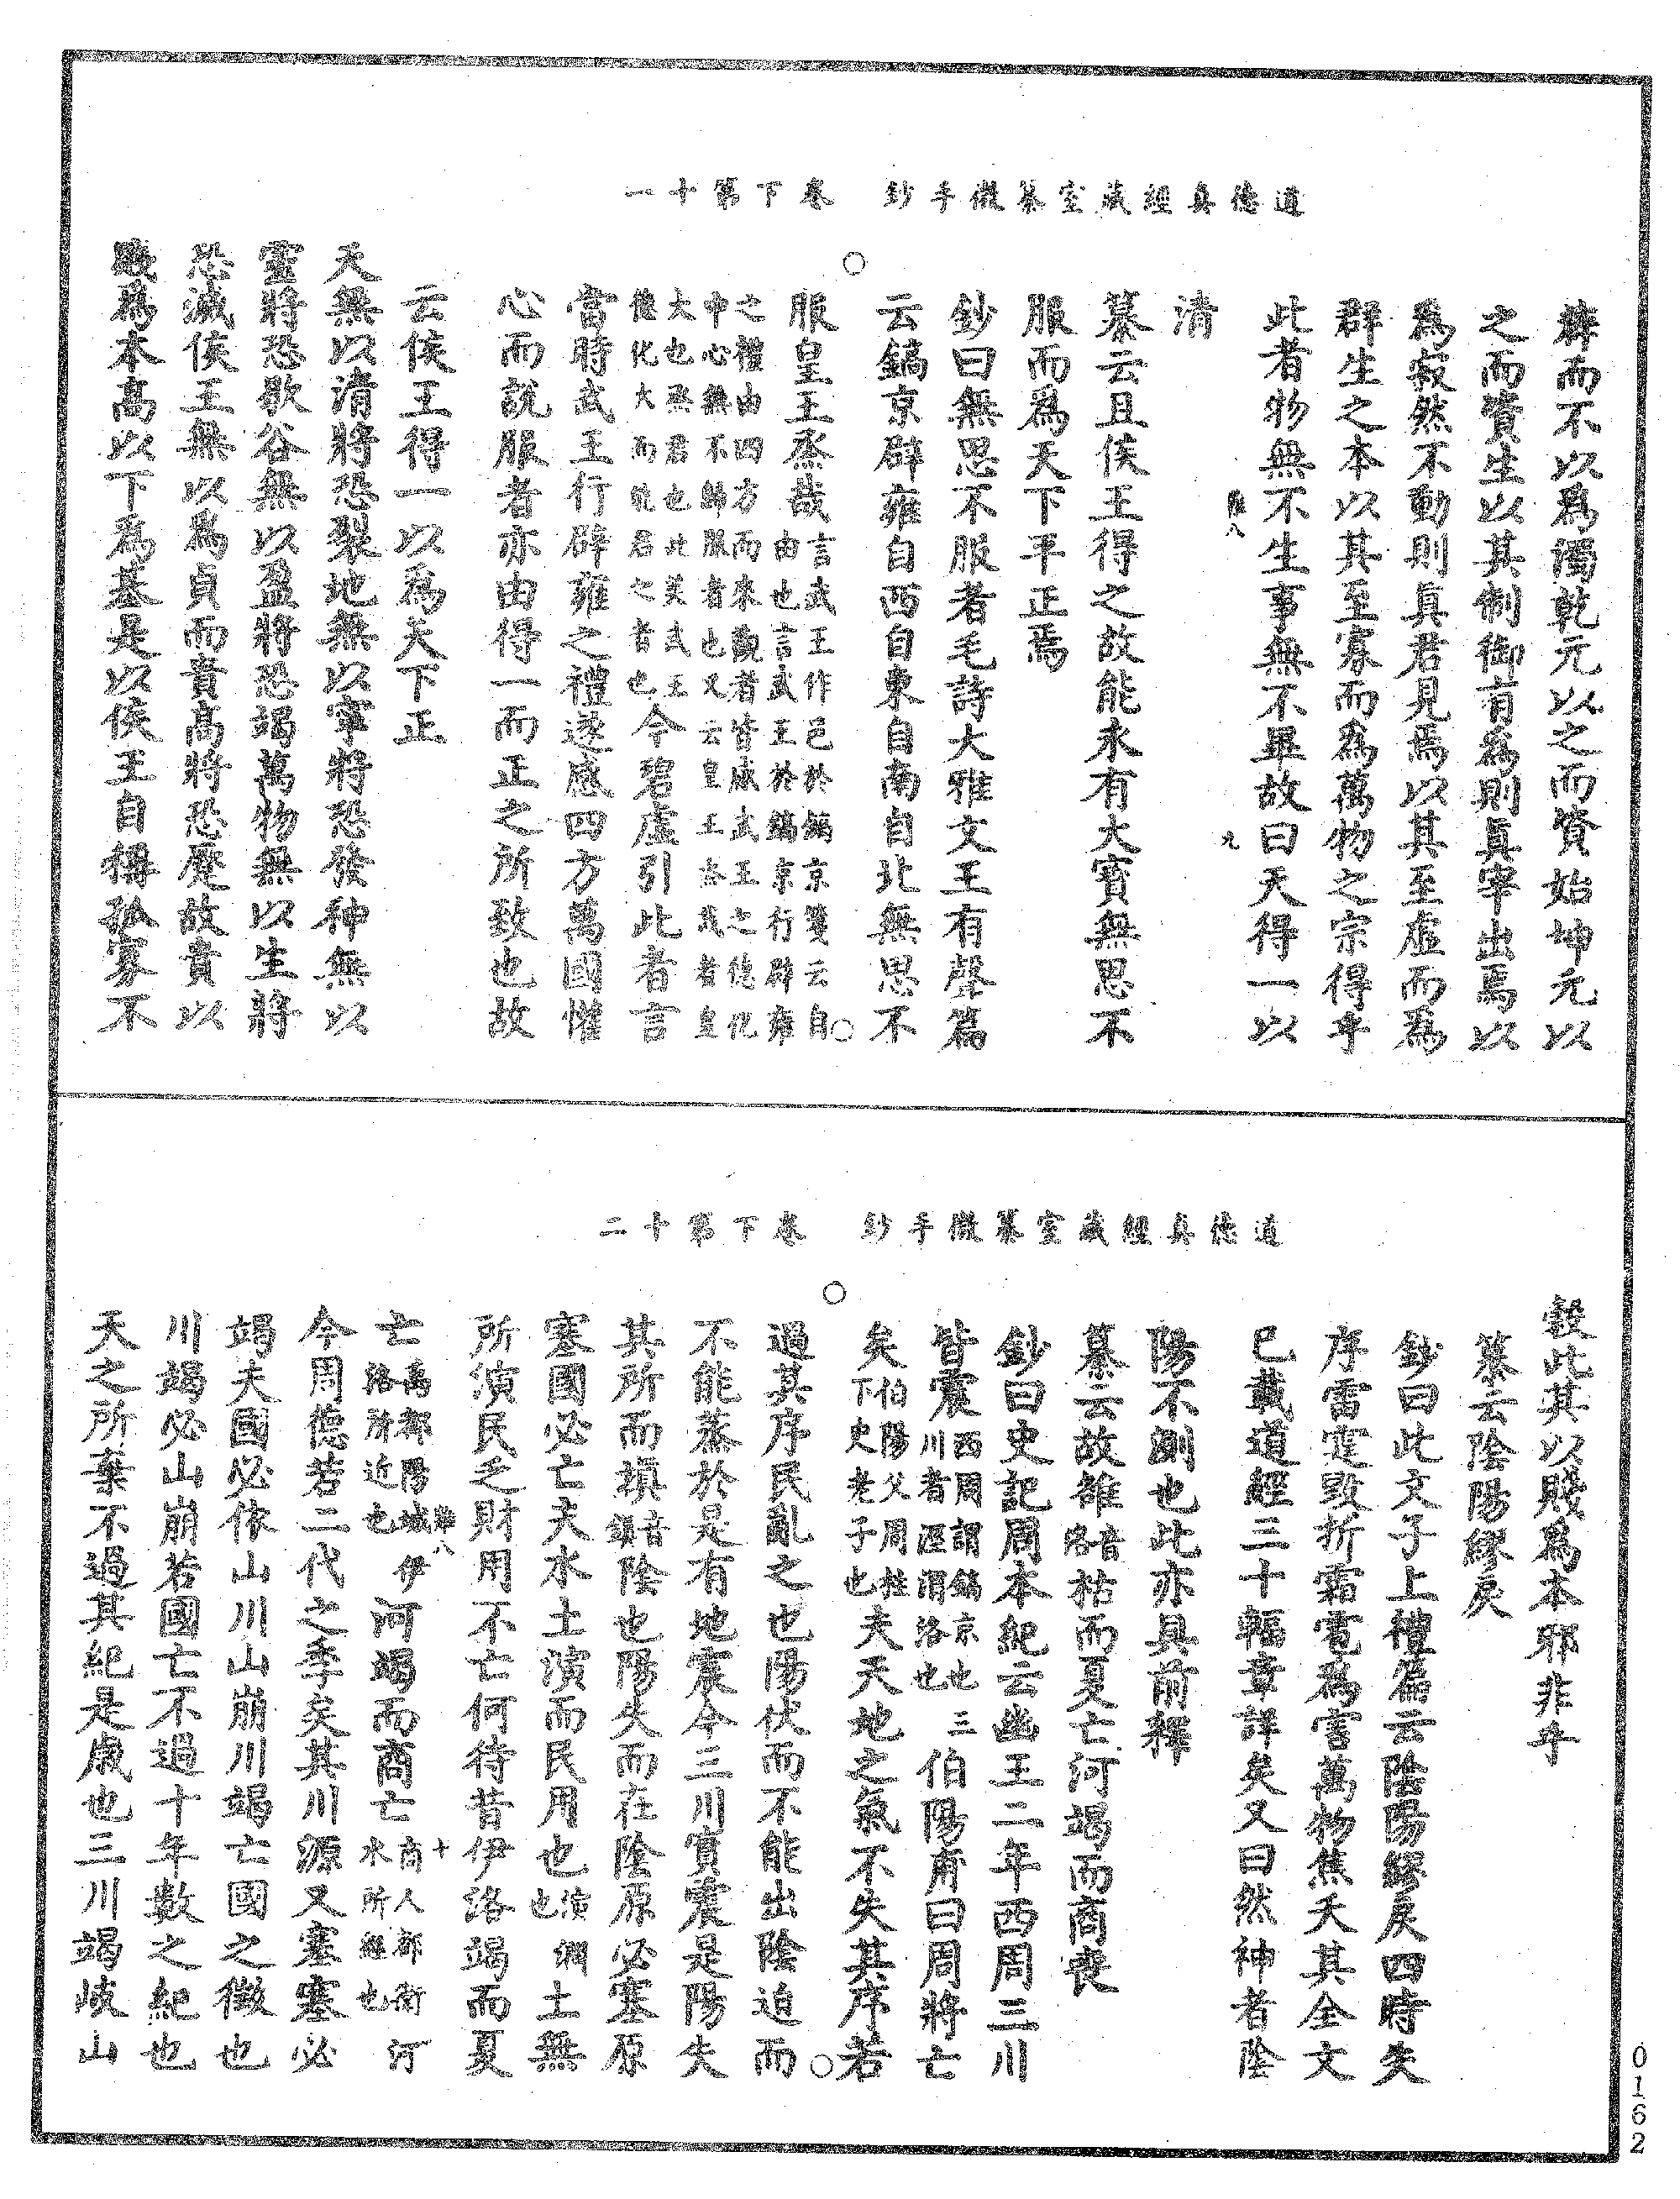 道德真經藏室纂微手鈔　卷下第十一
辭而不以爲濁乾元以之而資始坤元以
之而資生以其制御有爲則真宰出焉以
爲寂然不動則真君見焉以其至虛而爲
群生之本以其至寡而爲萬物之宗得乎
此者物無不生事無不畢故曰天得一以
清
纂云且侯王得之故能永有大寶無思不
服而爲天下平正焉
鈔曰無思不服者毛詩大雅文王有聲篇
云鎬京辟雍自西自東自南自北無思不
服皇王烝哉言武王作邑於鎬京箋云自
由也言武王於鎬京行辟雍
之禮由四方而來觀者皆感武王之德化
中心無不歸服者也又云皇王烝哉者皇
大也烝君也此美武王
德化大而能君之者也今碧虛引此者言
當時武王行辟雍之禮遂感四方萬國懽
心而說服者亦由得一而正之所致也故
云侯王得一以爲天下正
天無以清將恐裂地無以寧將恐發神無以
靈將恐歇谷無以盈將恐竭萬物無以生將
恐滅侯王無以爲貞而貴高將恐蹷故貴以
賤爲本高以下爲基是以侯王自稱孤寡不
道德真經藏室纂微手鈔　卷下第十二
穀此其以賤爲本邪非乎
纂云陰陽繆戾
鈔曰此文子上禮篇云陰陽繆戾四時失
序雷霆毀折霜雹爲害萬物焦夭其全文
已載道經三十輻章詳矣又曰然神者陰
陽不測也此亦具前釋
纂云故雒音洛枯而夏亡河竭而商喪
鈔曰史記周本紀云幽王二年西周三川
皆震西周謂鎬京也三川者涇渭洛也伯陽甫曰周將亡
矣伯陽父周柱下史老子也夫天地之氣不失其序若
過其序民亂之也陽伏而不能出陰迫而
不能蒸於是有地震今三川實震是陽失
其所而填音鎮陰也陽失而在陰原必塞原
塞國必亡夫水土演而民用也演潤也土無
所演民乏財用不亡何待昔伊洛竭而夏
亡禹都陽城伊洛所近也河竭而商亡商人都衛河水所經也
今周德若二代之季矣其川源又塞塞必
竭夫國必依山川山崩川竭亡國之徵也
川竭必山崩若國亡不過十年數之紀也
天之所棄不過其紀是歲也三川竭岐山
0162